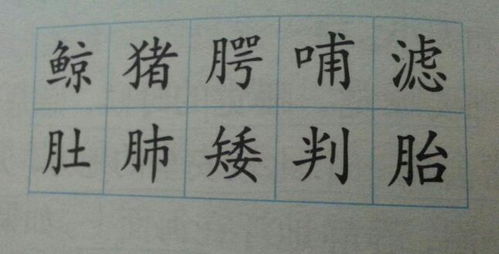 鲸猪腭哺滤
肚肺矮判胎